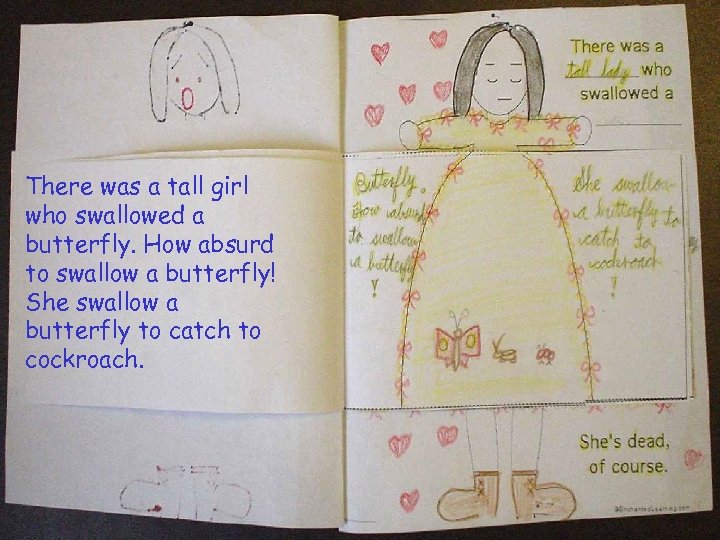 There was a tall girl
who swallowed a
butterfly. How absurd
to swallow a butterfly!
She swallow a
butterfly to catch to
cockroach.
There was a
tall lady who
swallowed a
Butterfly.
How absurd
to swallow
a butterfly
!
She swallow
a butterfly to
catch to
cockroach
!
She's dead,
of course.
©EnchantedLearning.com